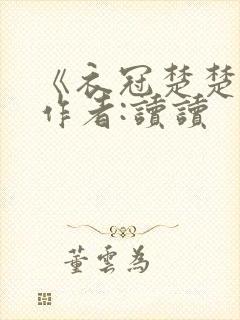 《衣冠楚楚
作者:讀讀
董雲為